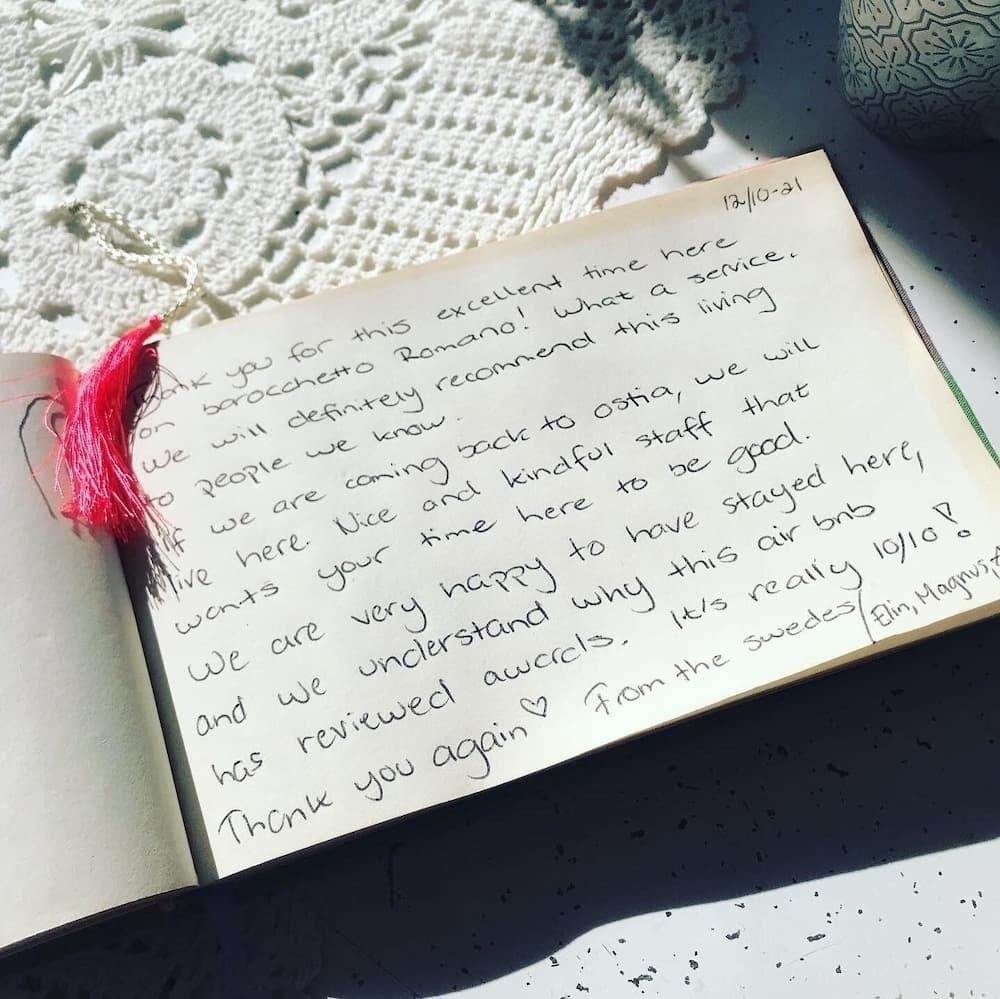 12/10-21
Thank you for this excellent time here
on barocchetto Romano! What a service.
We will definitely recommend this living
to people we know.
If we are coming back to ostia, we will
live here. Nice and kindful staff that
wants your time here to be good.
We are very happy to have stayed here,
and we understand why this air bnb
has reviewed awards. It's really 10/10!
Thank you again♡ From the swedes/Elin, Magnus,